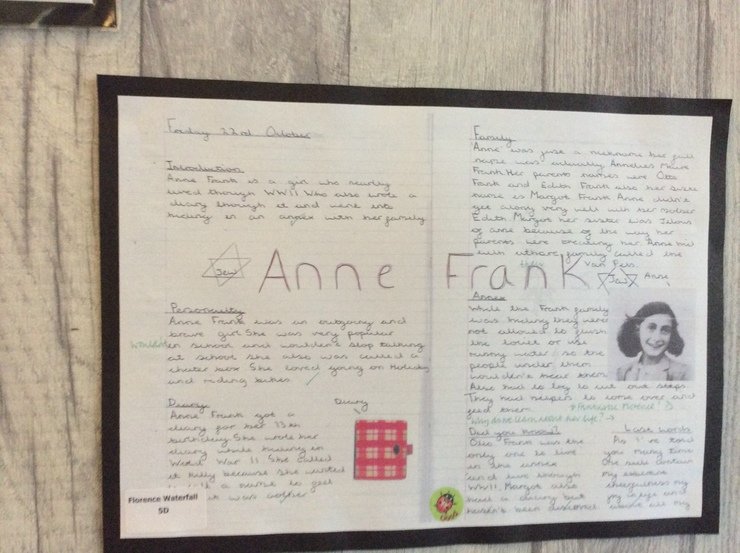 Friday 22nd October
Introduction
Anne Frank is a girl who nearly
lived though WWII Who also wrote a
diary though it and went into
hiding in an annex with her family
Jew
Anne Frank
Personality
Anne Frank was an outgoing and
brave girl She was very popular
in school and wouldn't stop talking
wouldn't
at school She also was called a
chater box She loved going on Holiday
and riding bikes.
Diary
Diary
Anne Frank got a
diary for her 13th
birthday She wrote her
diary while hiding in
World War II She called
it kitty because She wanted
a name to
it was
Florence Waterfall
5D
Family
'Anne' was just a nickname her full
name was actually Annelies Marie
Frank. Her parents names were Otto
Frank and Edith Frank also her sister
name is Margot Frank Anne didn't
get along very well with her mother
Edith. Margot her sister was
of anne because of the way her
parents were treating her. Anne hid
with family called the
Van Pels.
Jew
Anne
Annex
While the Frank family
was hiding they were
not allowed to flush
the toilet or use
running water so the
people under them
wouldn't hear them
Also had to to cut out
They had helpers to come over and
feed them.
Why do we learn about her life? →
Did you know?
Otto Frank was the
only one to live
in the annex
and live through
WWII. Margot also
had a diary but
hasn't been
Last words
As I've told
you many time
One split
my
my